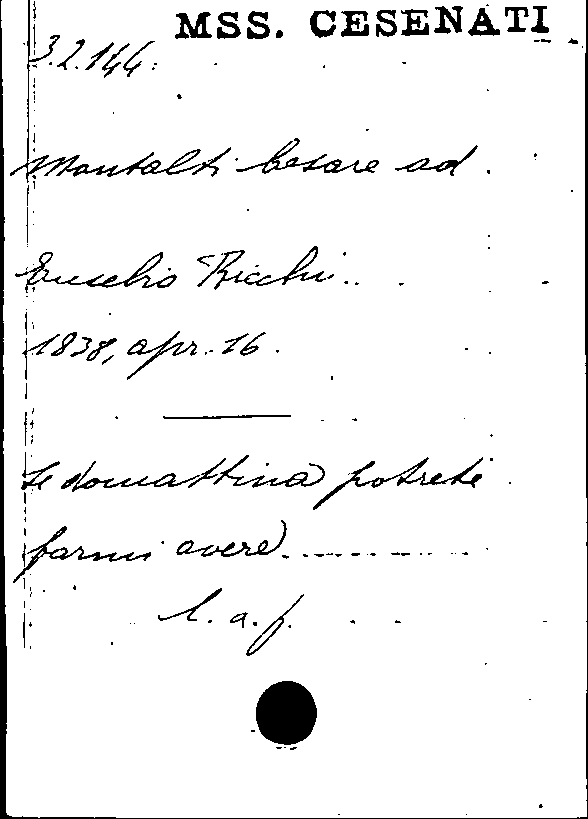 MSS. CESENATI
3.2.144.
Montalti Cesare ad
Eusebio Ricchi...
1838, apr. 16.
Se domattina potrete
farmi avere...........
l. a. f.